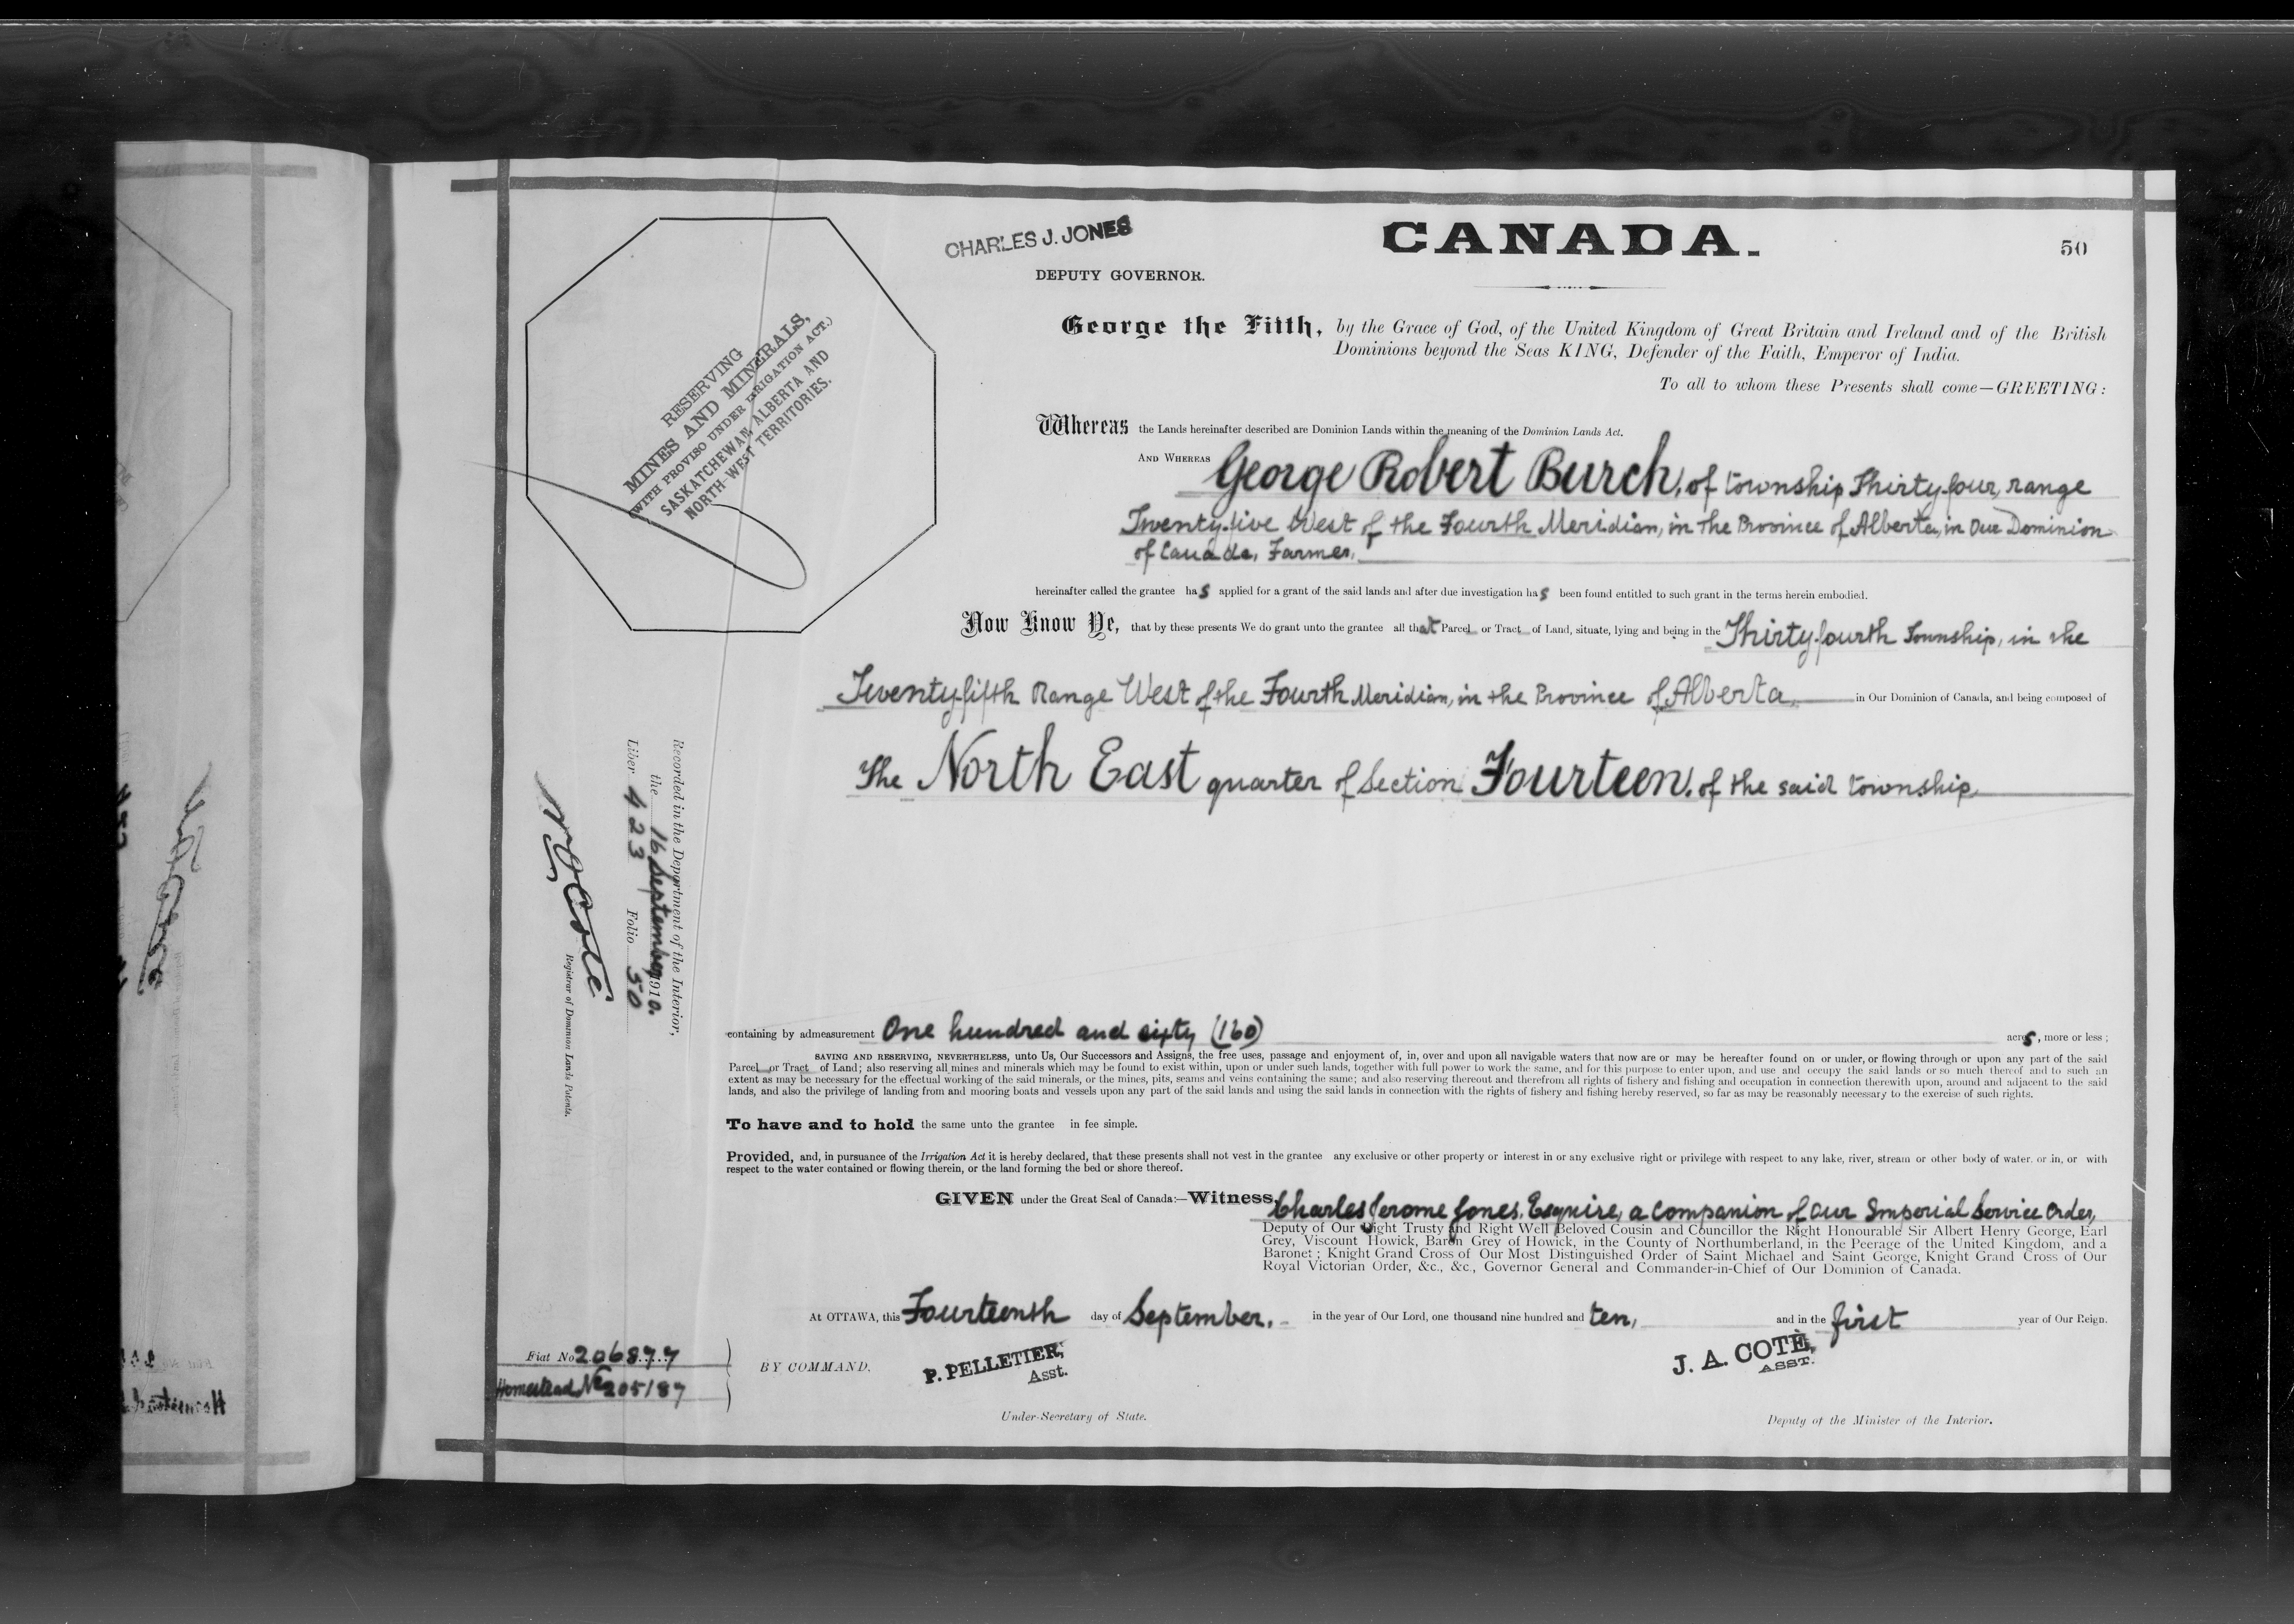 CHARLES J. JONES
CANADA.
50
DEPUTY GOVERNOR.
RESERVING
MINES AND MINERALS,
(WITH PROVISO UNDER IRRIGATION ACT.)
SASKATCHEWAN, ALBERTA AND
NORTH-WEST TERRITORIES.
George the Fifth, by the Grace of God, of the United Kingdom of Great Britain and Ireland and of the British
Dominions beyond the Seas KING, Defender of the Faith, Emperor of India.
To all to whom these Presents shall come—GREETING:
Whereas the Lands hereinafter described are Dominion Lands within the meaning of the Dominion Lands Act.
AND WHEREAS George Robert Burch, of township Thirty four, range
Twenty five West of the Fourth Meridian, in the Province of Alberta, in Our Dominion
of Canada, Farmer,
hereinafter called the grantee has applied for a grant of the said lands and after due investigation has been found entitled to such grant in the terms herein embodied.
Now Know Ye, that by these presents We do grant unto the grantee all that Parcel or Tract of Land, situate, lying and being in the Thirty fourth Township, in the
Twenty fifth Range West of the Fourth Meridian, in the Province of Alberta, in Our Dominion of Canada, and being composed of
The North East quarter of Section Fourteen, of the said township
Recorded in the Department of the Interior,
the 16 September 1910.
Liber 423 Folio 50
N O Coté
Registrar of Dominion Lands Patents.
containing by admeasurement One hundred and sixty (160) acres, more or less;
SAVING AND RESERVING, NEVERTHELESS, unto Us, Our Successors and Assigns, the free uses, passage and enjoyment of, in, over and upon all navigable waters that now are or may be hereafter found on or under, or flowing through or upon any part of the said
Parcel or Tract of Land; also reserving all mines and minerals which may be found to exist within, upon or under such lands, together with full power to work the same, and for this purpose to enter upon, and use and occupy the said lands or so much thereof and to such an
extent as may be necessary for the effectual working of the said minerals, or the mines, pits, seams and veins containing the same; and also reserving thereout and therefrom all rights of fishery and fishing and occupation in connection therewith upon, around and adjacent to the said
lands, and also the privilege of landing from and mooring boats and vessels upon any part of the said lands and using the said lands in connection with the rights of fishery and fishing hereby reserved, so far as may be reasonably necessary to the exercise of such rights.
To have and to hold the same unto the grantee in fee simple.
Provided, and, in pursuance of the Irrigation Act it is hereby declared, that these presents shall not vest in the grantee any exclusive or other property or interest in or any exclusive right or privilege with respect to any lake, river, stream or other body of water, or in, or with
respect to the water contained or flowing therein, or the land forming the bed or shore thereof.
GIVEN under the Great Seal of Canada:—Witness, Charles Jerome Jones, Esquire, a Companion of Our Imperial Service Order,
Deputy of Our Right Trusty and Right Well Beloved Cousin and Councillor the Right Honourable Sir Albert Henry George, Earl
Grey, Viscount Howick, Baron Grey of Howick, in the County of Northumberland, in the Peerage of the United Kingdom, and a
Baronet; Knight Grand Cross of Our Most Distinguished Order of Saint Michael and Saint George, Knight Grand Cross of Our
Royal Victorian Order, &c., &c., Governor General and Commander-in-Chief of Our Dominion of Canada.
At OTTAWA, this Fourteenth day of September, in the year of Our Lord, one thousand nine hundred and ten, and in the first year of Our Reign.
Fiat No 206877
Homestead No 205187
BY COMMAND,
P. PELLETIER,
Asst.
Under-Secretary of State.
J. A. COTÉ,
ASST.
Deputy of the Minister of the Interior.